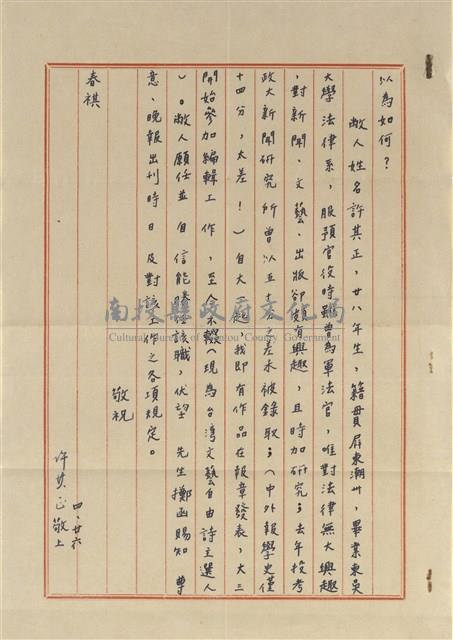 以為如何？
敝人姓名許其正，廿八年生，籍貫屏東潮州，畢業東吳
大學法律系，服預官役時雖曾為軍法官，唯對法律無大興趣
，對新聞、文藝、出版卻頗有興趣，且時加研究；去年投考
政大新聞研究所曾以五十之差未被錄取；（中外報學史僅
十四分，太差！）自大，我即有作品在報章發表，大三
開始參加編輯工作，至今不輟（現為台灣文藝自由詩主選人
）。敝人願任並自信能勝任該職，伏望 先生擲函賜知 尊
意、晚報出刊時日及對該工作之各項規定。
敬祝
春祺
許其正敬上
四、廿六
南投縣政府文化局
Cultural Bureau of Nantou County Government